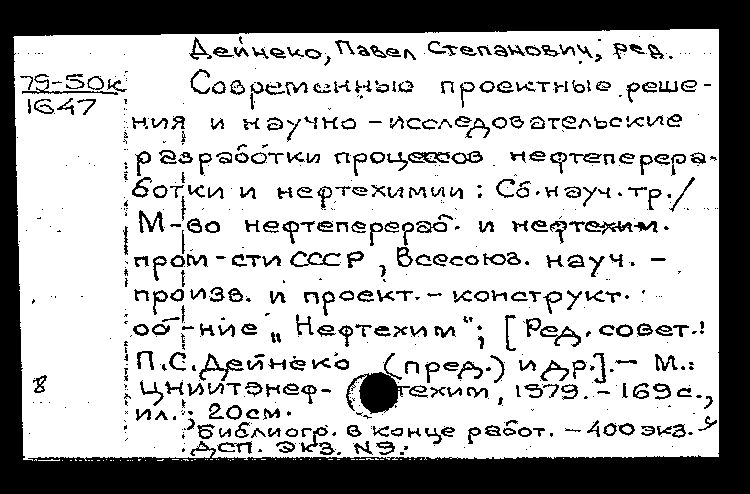 Дейнеко, Павел Степанович, ред.
79-50к
1647
Современные проектные реше-
ния и научно-исследовательские
разработки процессов нефтеперера-
ботки и нефтехимии: Сб. науч. тр./
М-во нефтеперераб. и нефтехим.
пром-сти СССР, Всесоюз. науч.-
произв. и проект.-конструкт.
об-ние „Нефтехим“; [Ред. совет.:
П.С. Дейнеко (пред.) и др.].— М.:
ЦНИИТЭнеф-техим, 1979.-169 с.,
ил.; 20см.
Библиогр. в конце работ. — 400 экз.
ДСП. Экз. №
8